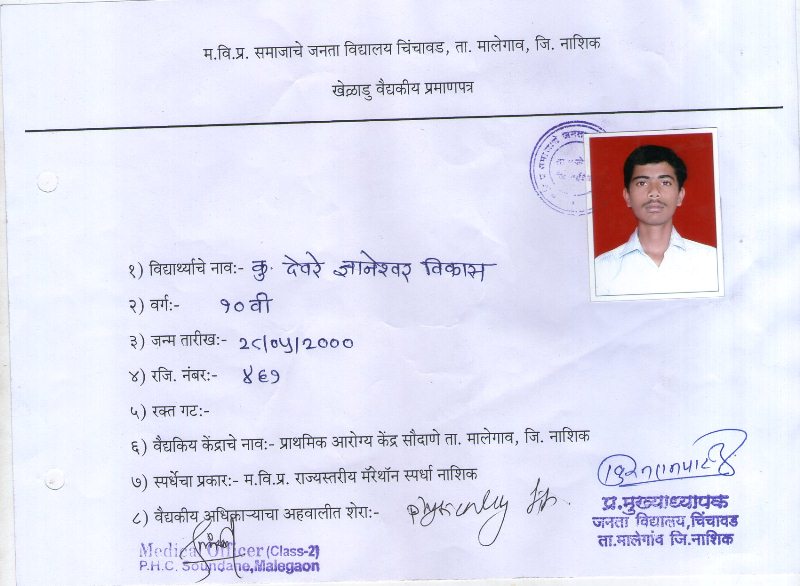 म.वि.प्र. समाजाचे जनता विद्यालय चिंचावड, ता. मालेगाव, जि. नाशिक
खेळाडु वैद्यकीय प्रमाणपत्र
१) विद्यार्थ्याचे नाव:- कु. देवरे ज्ञानेश्वर विकास
२) वर्ग:- १०वी
३) जन्म तारीख:- २८/०५/२०००
४) रजि. नंबर:- ४६१
५) रक्त गट:-
६) वैद्यकिय केंद्राचे नाव:- प्राथमिक आरोग्य केंद्र सौदाणे ता. मालेगाव, जि. नाशिक
७) स्पर्धेचा प्रकार:- म.वि.प्र. राज्यस्तरीय मॅरेथॉन स्पर्धा नाशिक
८) वैद्यकीय अधिकाऱ्याचा अहवालीत शेरा:- Physically fit.
प्र.मुख्याध्यापक
जनता विद्यालय,चिंचावड
ता.मालेगांव जि.नाशिक
Medical Officer (Class-2)
P.H.C. Soundane,Malegaon